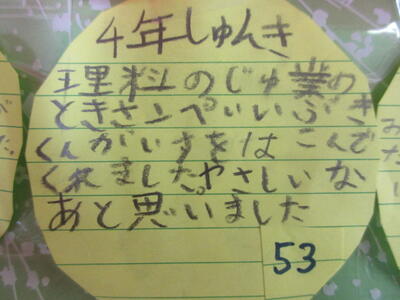 4年しゅんき
理料のじゅ業の
ときさんぺいいぶき
くんがいすをはこんで
くれましたやさしいな
あと思いました
53